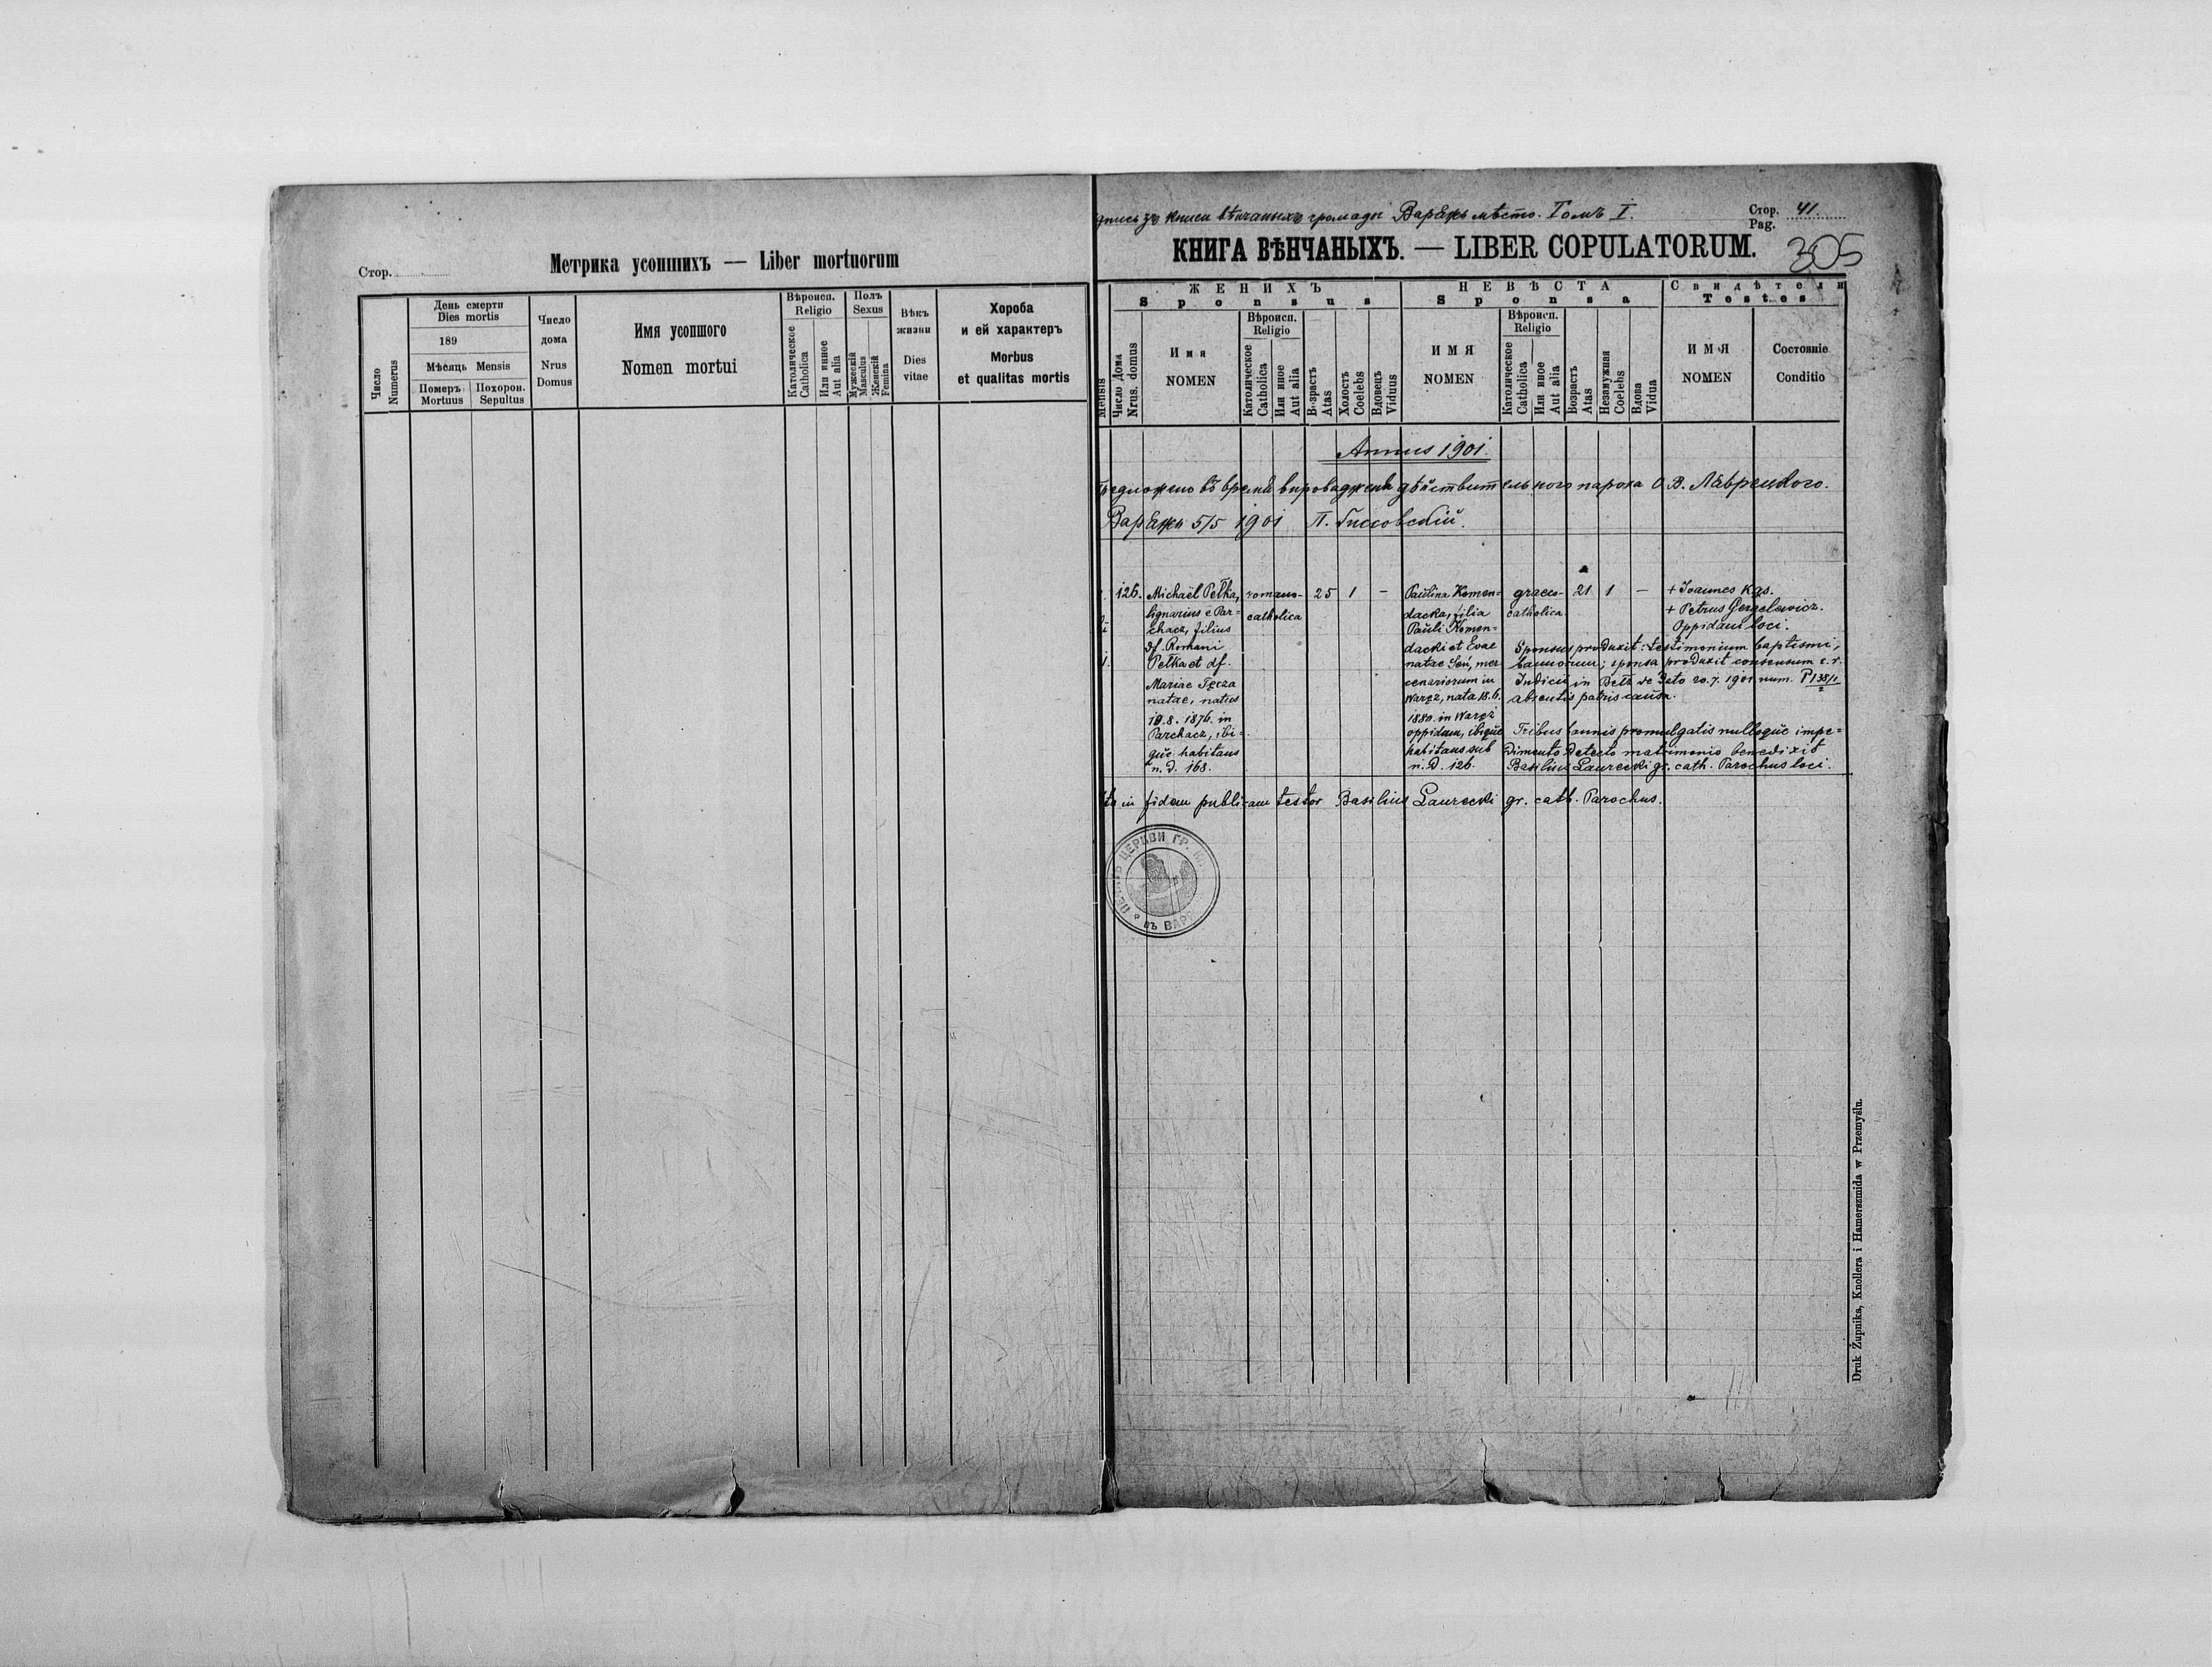 Стор.
Метрика усопшихъ — Liber mortuorum
Число
Numerus
День смерти
Dies mortis
189
Мѣсяць Mensis
Померъ
Mortuus
Похорон.
Sepultus
Число
дома
Nrus
Domus
Имя усопшого
Nomen mortui
Вѣроисп.
Religio
Католическое
Catholica
Или инное
Aut alia
Полъ
Sexus
Мужескій
Masculus
Женскій
Femina
Вѣкъ
жизни
Dies
vitae
Хороба
и ей характеръ
Morbus
et qualitas mortis
книги вѣнчаныхъ громады Варяжъ мѣсто. Томъ I.
Стор. 41.
Pag.
305
КНИГА ВѢНЧАНЫХЪ. — LIBER COPULATORUM.
Mensis
Число дома
Nrus. domus
ЖЕНИХЪ
Sponsus
Имя
NOMEN
Вѣроисп.
Religio
Католическое
Catholica
Или иное
Aut alia
Возрастъ
Atas
Холостъ
Coelebs
Вдовецъ
Viduus
НЕВѢСТА
Sponsa
ИМЯ
NOMEN
Вѣроисп.
Religio
Католическое
Catholica
Или иное
Aut alia
Возрастъ
Atas
Незамужная
Coelebs
Вдова
Vidua
Свидѣтели
Testes
ИМЯ
NOMEN
Состояніе
Conditio
Annus 1901.
въ время дѣйствительного пароха О. В. Лаврецкого.
5/5 1901 П.
126.
Michaël Pełka,
lignarius e Par=
chacz, filius
df. Romani
Pełka et df.
Mariae Tęcza
natae, natus
18.8.1876. in
Parchacz, ibi=
que habitans
n. d. 168.
romano-
catholica
25 1 –
Paulina Komen=
dacka, filia
Pauli Komen=
dacki et Evae
natae Seń, mer
cenariorum in
Waręż, nata 18.6.
1880. in Waręż
oppidum, ibique
habitans sub
n. d. 126.
graeco-
catholica
21 1 –
+ Joannes Kas.
+ Petrus Gergelewicz.
Oppidani loci.
Sponsus produxit: testimonium baptismi,
bannorum; sponsa produxit consensum c. r.
Judicii in Bełz de dato 20.7.1901 num. P 138/1
2
absentis patris causa.
Tribus bannis promulgatis nulloque impe=
dimento detecto matrimonio benedixit
Basilius Laurecki gr. cath. Parochus loci.
in fidem publicam testor Basilius Laurecki gr. cath. Parochus.
ЦЕРКВИ ГР.
въ ВАР
Druk Żupnika, Knollera i Hamerszmida w Przemyślu.